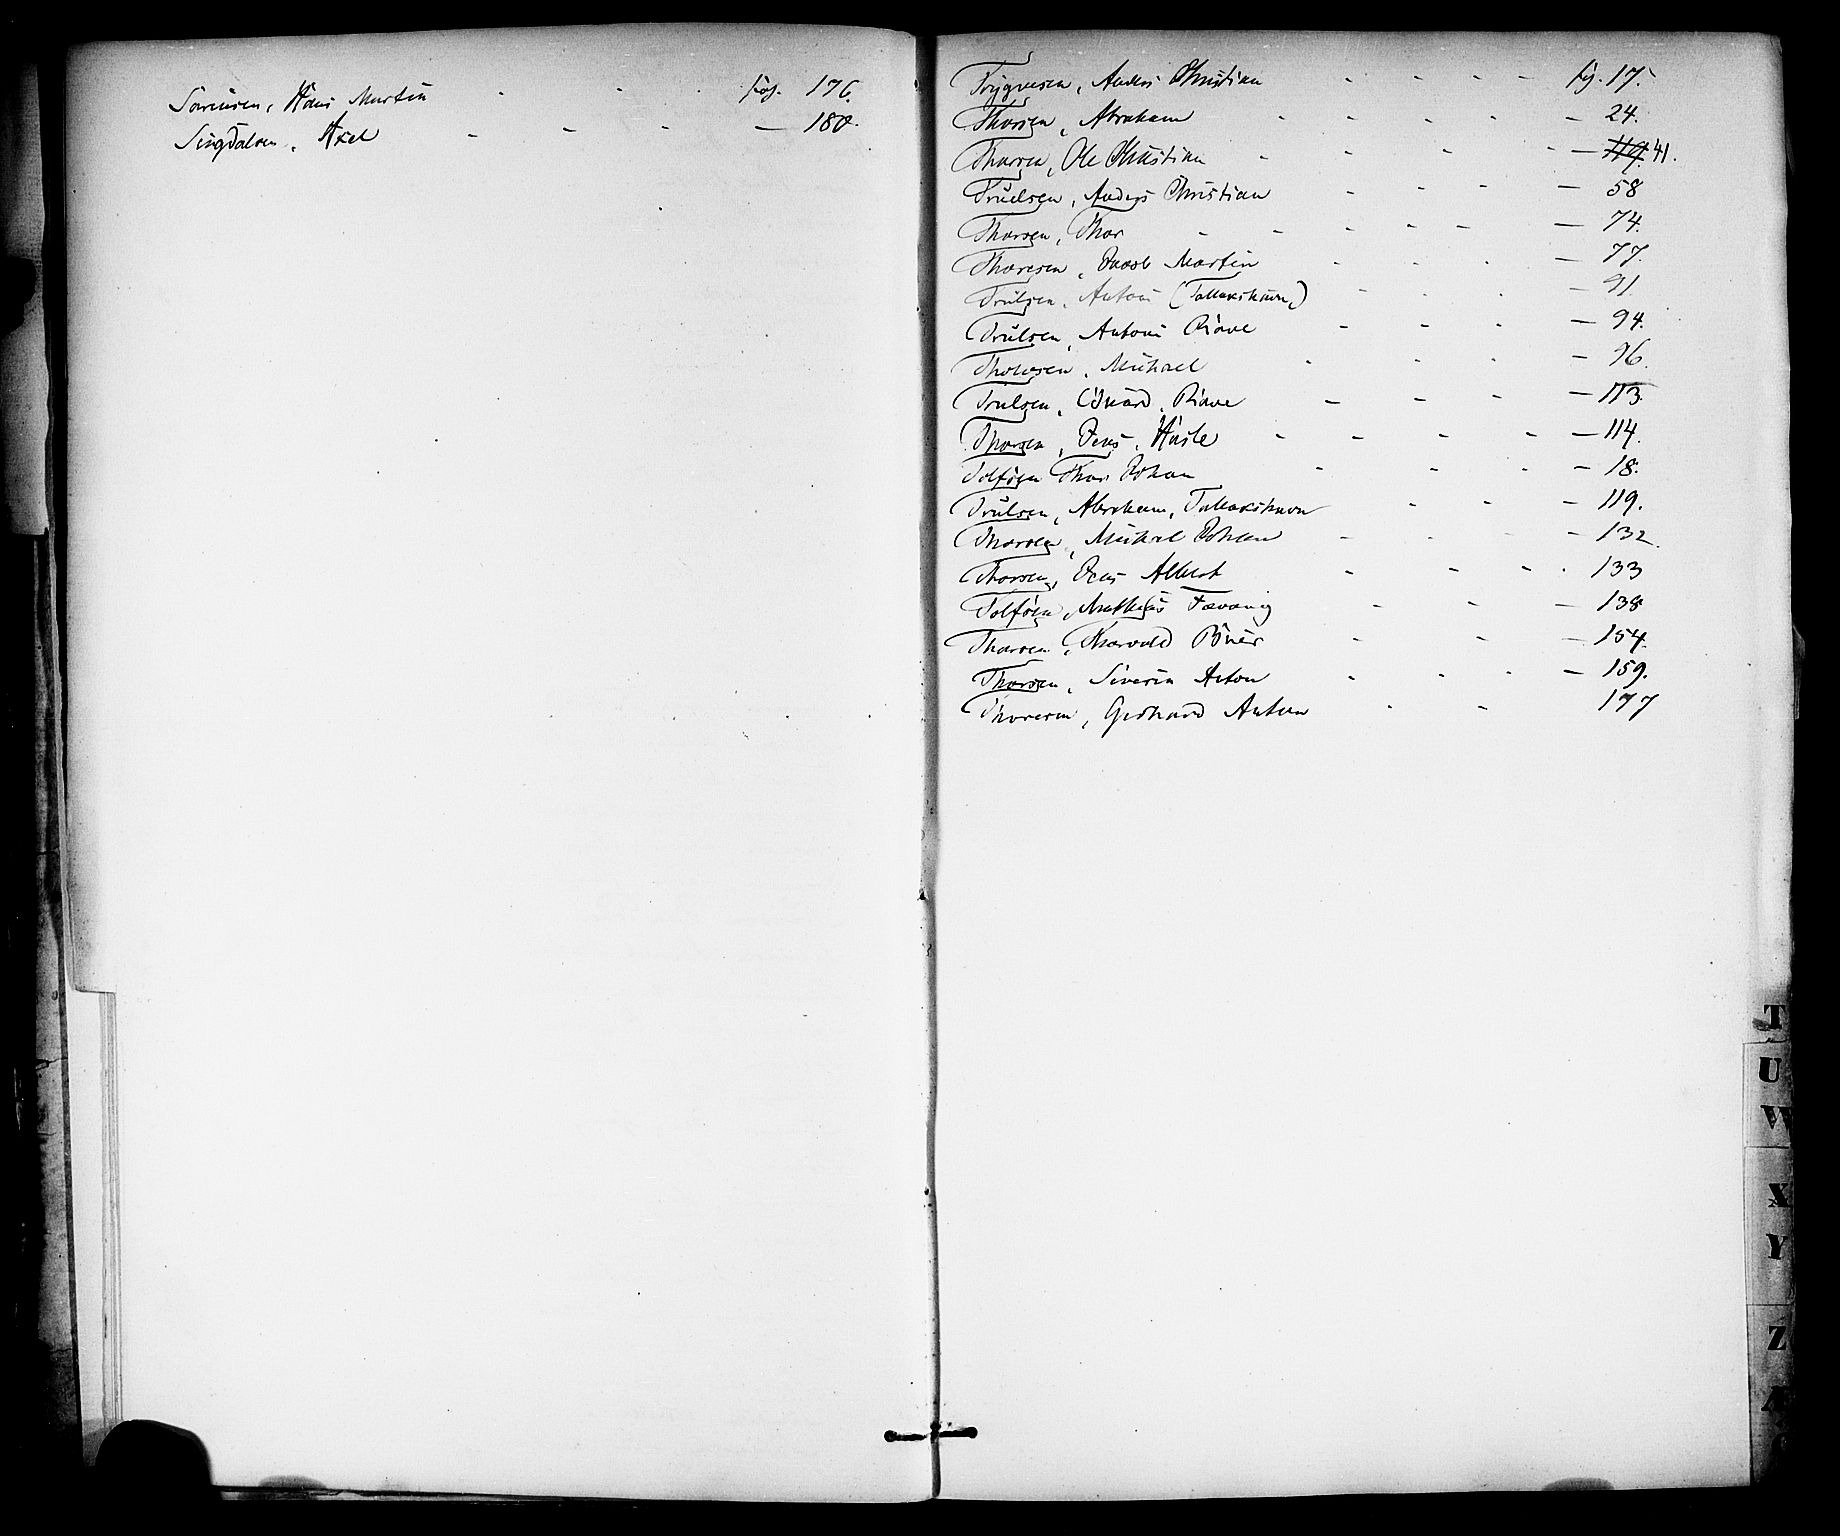 Sörensen, Hans Martin - - - pag. 176.
Singdalsen, Axel - - - — 180.
Trygvesen, Anders Christian - - - - pag. 17.
Thorsen, Abraham - - - - - — 24.
Thorsen, Ole Christian - - - - — 119. 41.
Truelsen, Anders Christian - - - — 58
Thorsen, Thor - - - - - — 74.
Thoresen, Jacob Martin - - - — 77.
Trulsen, Antoni (Tallakshavn) - - - — 91
Trulsen, Antoni Riöve - - - — 94.
Michael - - - — 96.
Trulsen, Edvard, Riöve - - - — 113.
Thorsen, Jens, Hasle - - - - — 114.
Tolfsen Thor Johan - - - — 18.
Trulsen, Abraham, Tallakshavn - - — 119.
Thorsen, Michael Johan - - - — 132.
Thorsen, Jens Albert - - - - 133
Tolfsen, Mathias - - — 138
Thorsen, Thorvald - - — 154.
Thorsen, Severin Anton - - - — 159.
Thoresen, Gerhard Anton - - 177
T
U
W
X
Y
Z